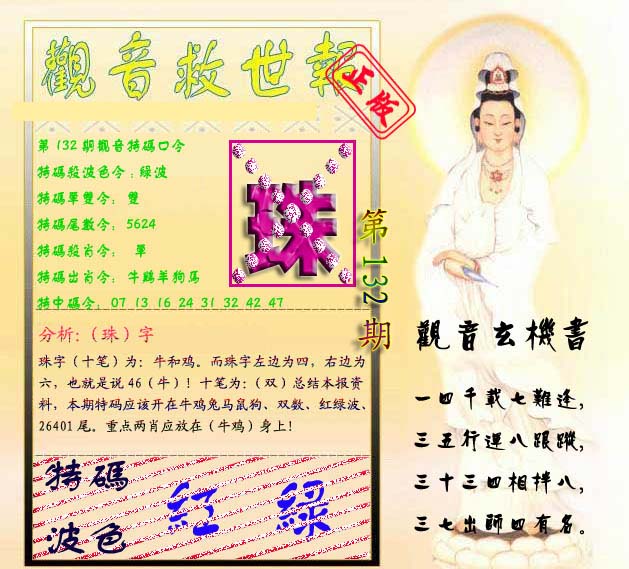 觀音救世報
正版
第132期觀音特碼口令
特碼殺波色令:綠波
特碼單雙令: 雙
特碼尾數令: 5624
特碼殺肖令: 單
特碼出肖令: 牛鷄羊狗馬
特中碼令: 07 13 16 24 31 32 42 47
珠
第132期
分析:(珠)字
珠字(十笔)为: 牛和鸡。而珠字左边为四, 右边为
六, 也就是说46(牛)! 十笔为:(双)总结本报资
料, 本期特码应该开在牛鸡兔马鼠狗、双数、红绿波、
26401尾。重点两肖应放在(牛鸡)身上!
特碼
波色
紅 綠
觀音玄機書
一四千載七難逢,
三五行運八跟蹤,
三十三四相拌八,
三七出師四有名。